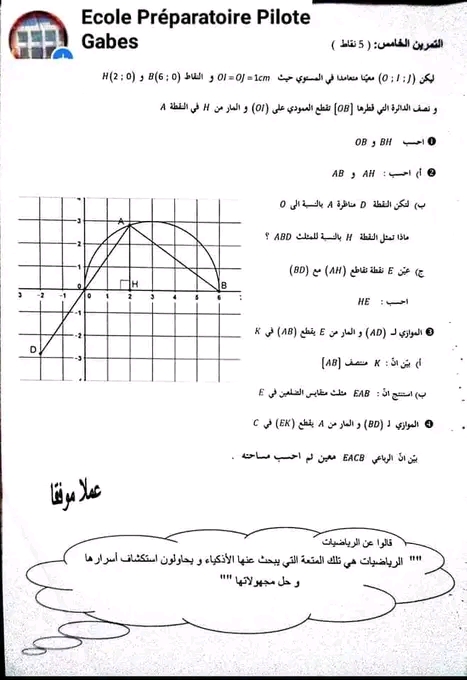 Ecole Préparatoire Pilote
Gabes
التمرين الخامس: ( 5 نقاط )
ليكن (O ; I ; J) معينا متعامدا في المستوي حيث OI = OJ = 1cm و النقاط B(6 ; 0) و H(2 ; 0)
و نصف الدائرة التي قطرها [OB] تقطع العمودي على (OI) و المار من H في النقطة A
❶ احسب BH و OB
❷ أ) احسب : AH و AB
ب) لتكن النقطة D مناظرة A بالنسبة الى O
ماذا تمثل النقطة H بالنسبة للمثلث ABD ؟
ج) عيّن E نقطة تقاطع (AH) مع (BD)
احسب : HE
❸ الموازي لـ (AD) و المار من E يقطع (AB) في K
أ) بيّن انّ : K منتصف [AB]
ب) استنتج انّ : EAB مثلث متقايس الضلعين في E
❹ الموازي لـ (BD) و المار من A يقطع (EK) في C
بيّن انّ الرباعي EACB معين ثم احسب مساحته .
3
A
2
1
3 -2 -1 0 0 1 2 3 4 5 6
H
B
-1
-2
-3
D
عملا موفقا
قالوا عن الرياضيات
"" الرياضيات هي تلك المتعة التي يبحث عنها الأذكياء و يحاولون استكشاف أسرارها
و حل مجهولاتها ""